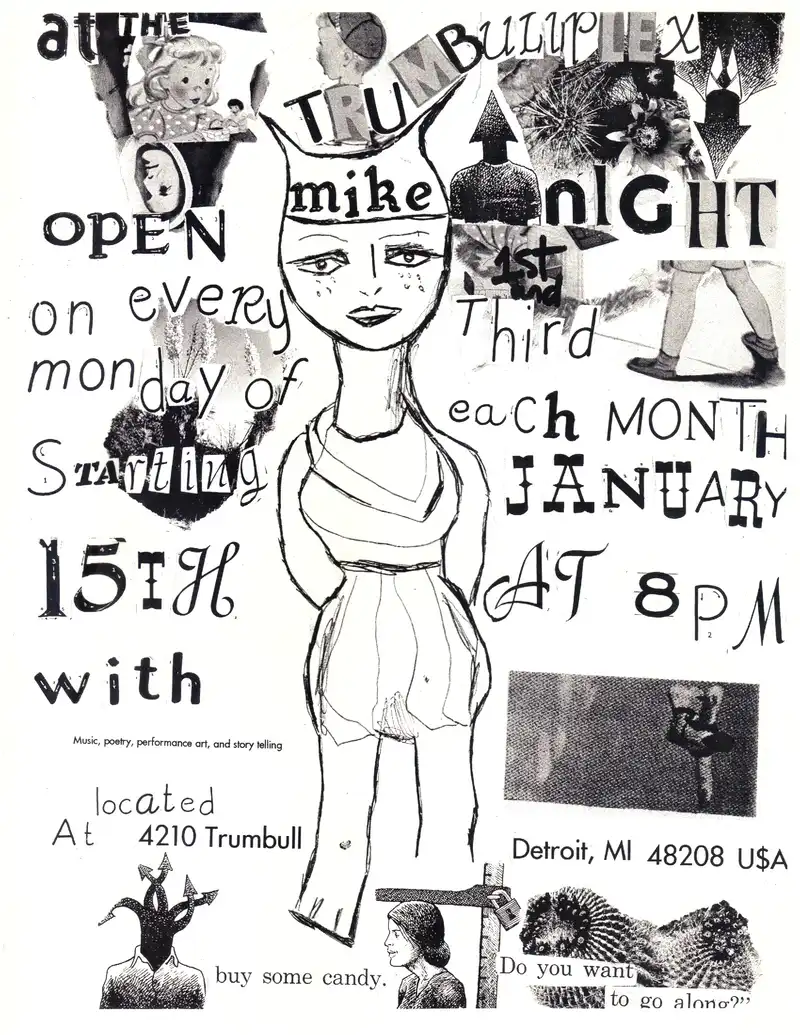 at THE TRUMBULLPLEX
OPEN mike NIGHT
on every 1st and
monday of Third
each MONTH
STARTING JANUARY
15TH AT 8PM
with
Music, poetry, performance art, and story telling
located
At 4210 Trumbull Detroit, MI 48208 U$A
buy some candy. Do you want
to go along?”